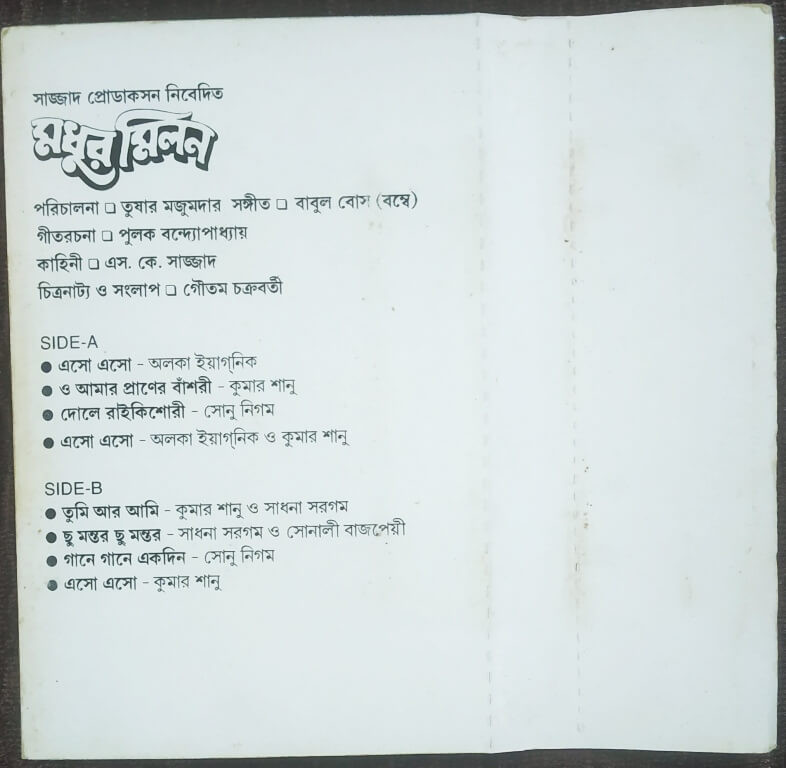 সাজ্জাদ প্রোডাকসন নিবেদিত
মধুর মিলন
পরিচালনা □ তুষার মজুমদার সঙ্গীত □ বাবুল বোস (বম্বে)
গীতরচনা □ পুলক বন্দ্যোপাধ্যায়
কাহিনী □ এস. কে. সাজ্জাদ
চিত্রনাট্য ও সংলাপ □ গৌতম চক্রবর্তী
SIDE-A
● এসো এসো - অলকা ইয়াগ্‌নিক
● ও আমার প্রাণের বাঁশরী - কুমার শানু
● দোলে রাইকিশোরী - সোনু নিগম
● এসো এসো - অলকা ইয়াগ্‌নিক ও কুমার শানু
SIDE-B
● তুমি আর আমি - কুমার শানু ও সাধনা সরগম
● ছু মন্তর ছু মন্তর - সাধনা সরগম ও সোনালী বাজপেয়ী
● গানে গানে একদিন - সোনু নিগম
● এসো এসো - কুমার শানু